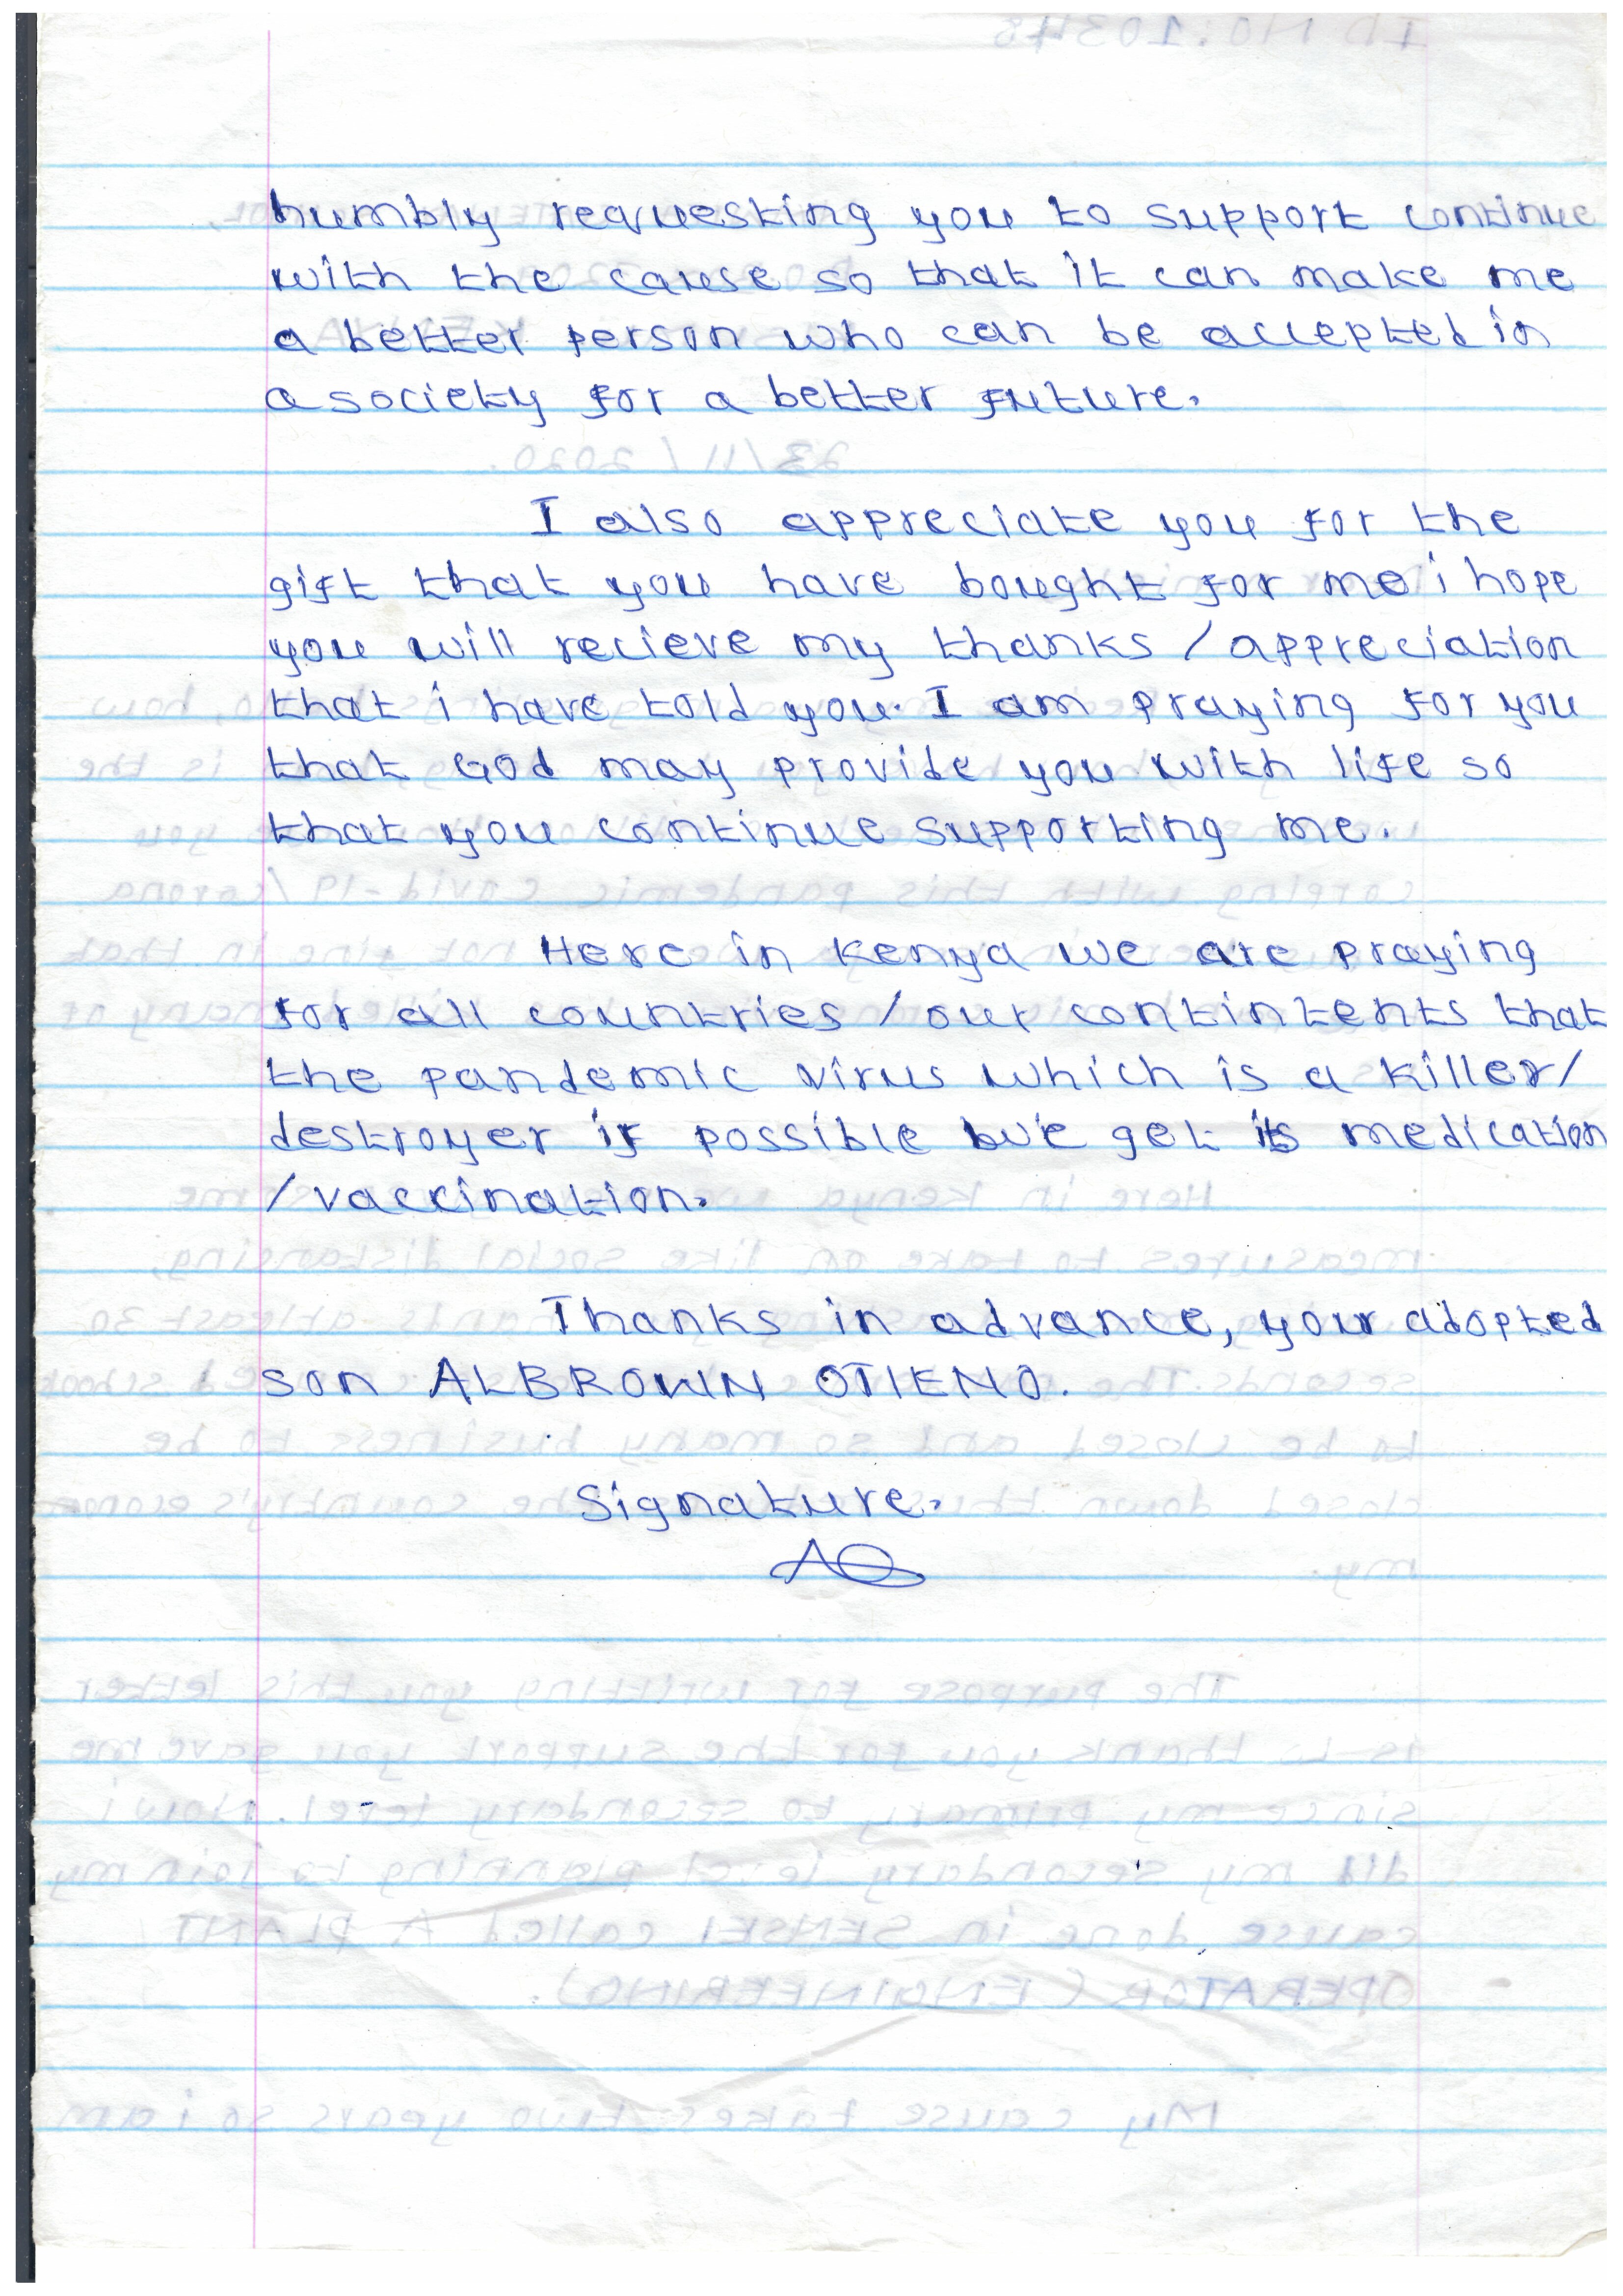 humbly requesting you to support continue
with the cause so that it can make me
a better person who can be accepted in
a society for a better future.
I also appreciate you for the
gift that you have bought for me i hope
you will recieve my thanks / appreciation
that i have told you. I am praying for you
that God may provide you with life so
that you continue supporting me.
Here in Kenya we are praying
for all countries / our contintents that
the pandemic virus which is a killer/
destroyer if possible we get its medication
/vaccination.
Thanks in advance, your adopted
son ALBROWN OTIENO.
Signature.
AO